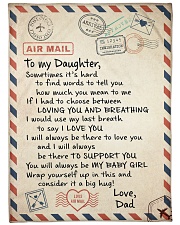 AIR MAIL
To my Daughter,
Sometimes it's hard
to find words to tell you
how much you mean to me
If I had to choose between
LOVING YOU AND BREATHING
I would use my last breath
to say I LOVE YOU
I will always be there to love you
and I will always
be there TO SUPPORT YOU
You will always be MY BABY GIRL
Wrap yourself up in this and
consider it a big hug!
Love,
Dad